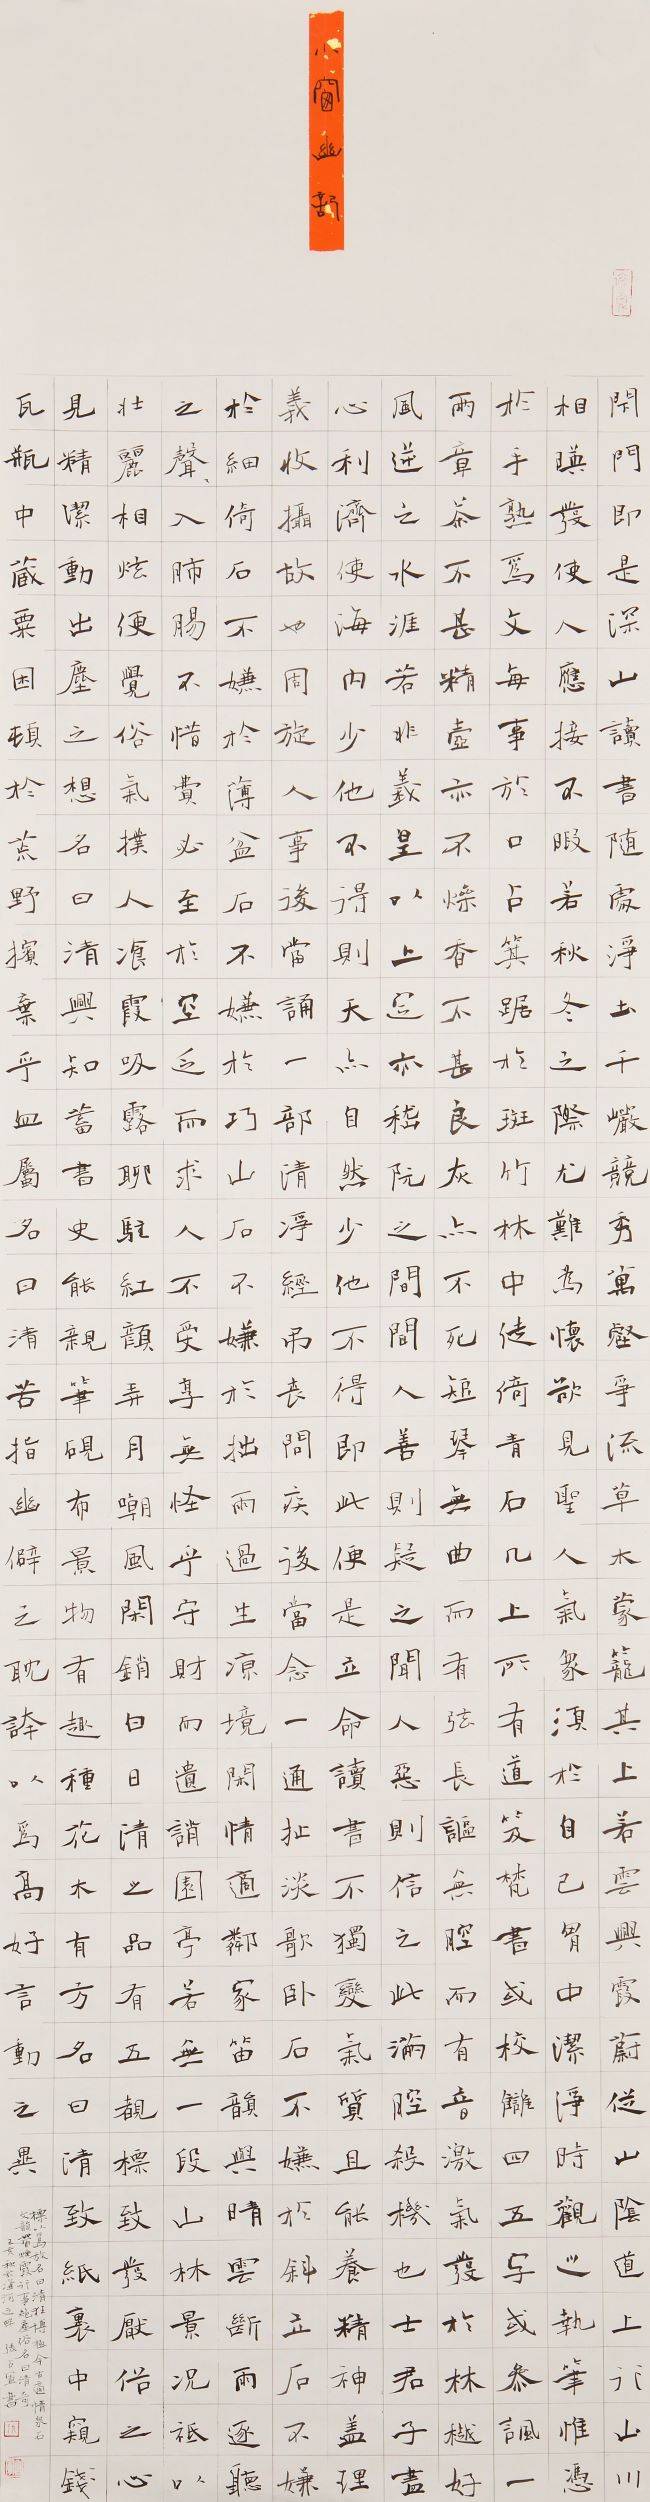 小窗幽記
閉門即是深山讀書隨處淨土千巖競秀萬壑爭流草木蒙籠其上若雲興霞蔚從山陰道上行山川
相暎發使人應接不暇若秋冬之際尤難為懷欲見聖人氣象須於自己胷中潔淨時觀之執筆惟憑
於手熟爲文每事於口占箕踞於斑竹林中徙倚青石几上所有道笈梵書或校讎四五字或參諷一
兩章茶不甚精壺亦不燥香不甚良灰亦不死短琴無曲而有弦長謳無腔而有音激氣發於林樾好
風逆之水涯若非義皇以上定亦嵇阮之間聞人善則疑之聞人惡則信之此滿腔殺機也士君子盡
心利濟使海內少他不得則天亦自然少他不得即此便是立命讀書不獨變氣質且能養精神蓋理
義收攝故也周旋人事後當誦一部清淨經吊喪問疾後當念一通扯淡歌臥石不嫌於斜立石不嫌
於細倚石不嫌於薄盆石不嫌於巧山石不嫌於拙雨過生凉境閑情適鄰家笛韻與晴雲斷雨逐聽
之聲、入肺腸不惜費必至於空乏而求人不受享無怪乎守財而遺誚園亭若無一段山林景況祗以
壯麗相炫便覺俗氣撲人飡霞吸露聊駐紅顏弄月嘲風閑銷白日清之品有五覩標致發厭俗之心
見精潔動出塵之想名曰清興知蓄書史能親筆硯布景物有趣種花木有方名曰清致紙裹中窺錢
瓦瓶中蔵粟困頓於荒野擯棄乎血屬名曰清苦指幽僻之耽誇以爲高好言動之異
標以爲放名曰清狂博極今古適情泉石
文韻帶煙霞行事絕塵俗名曰清奇